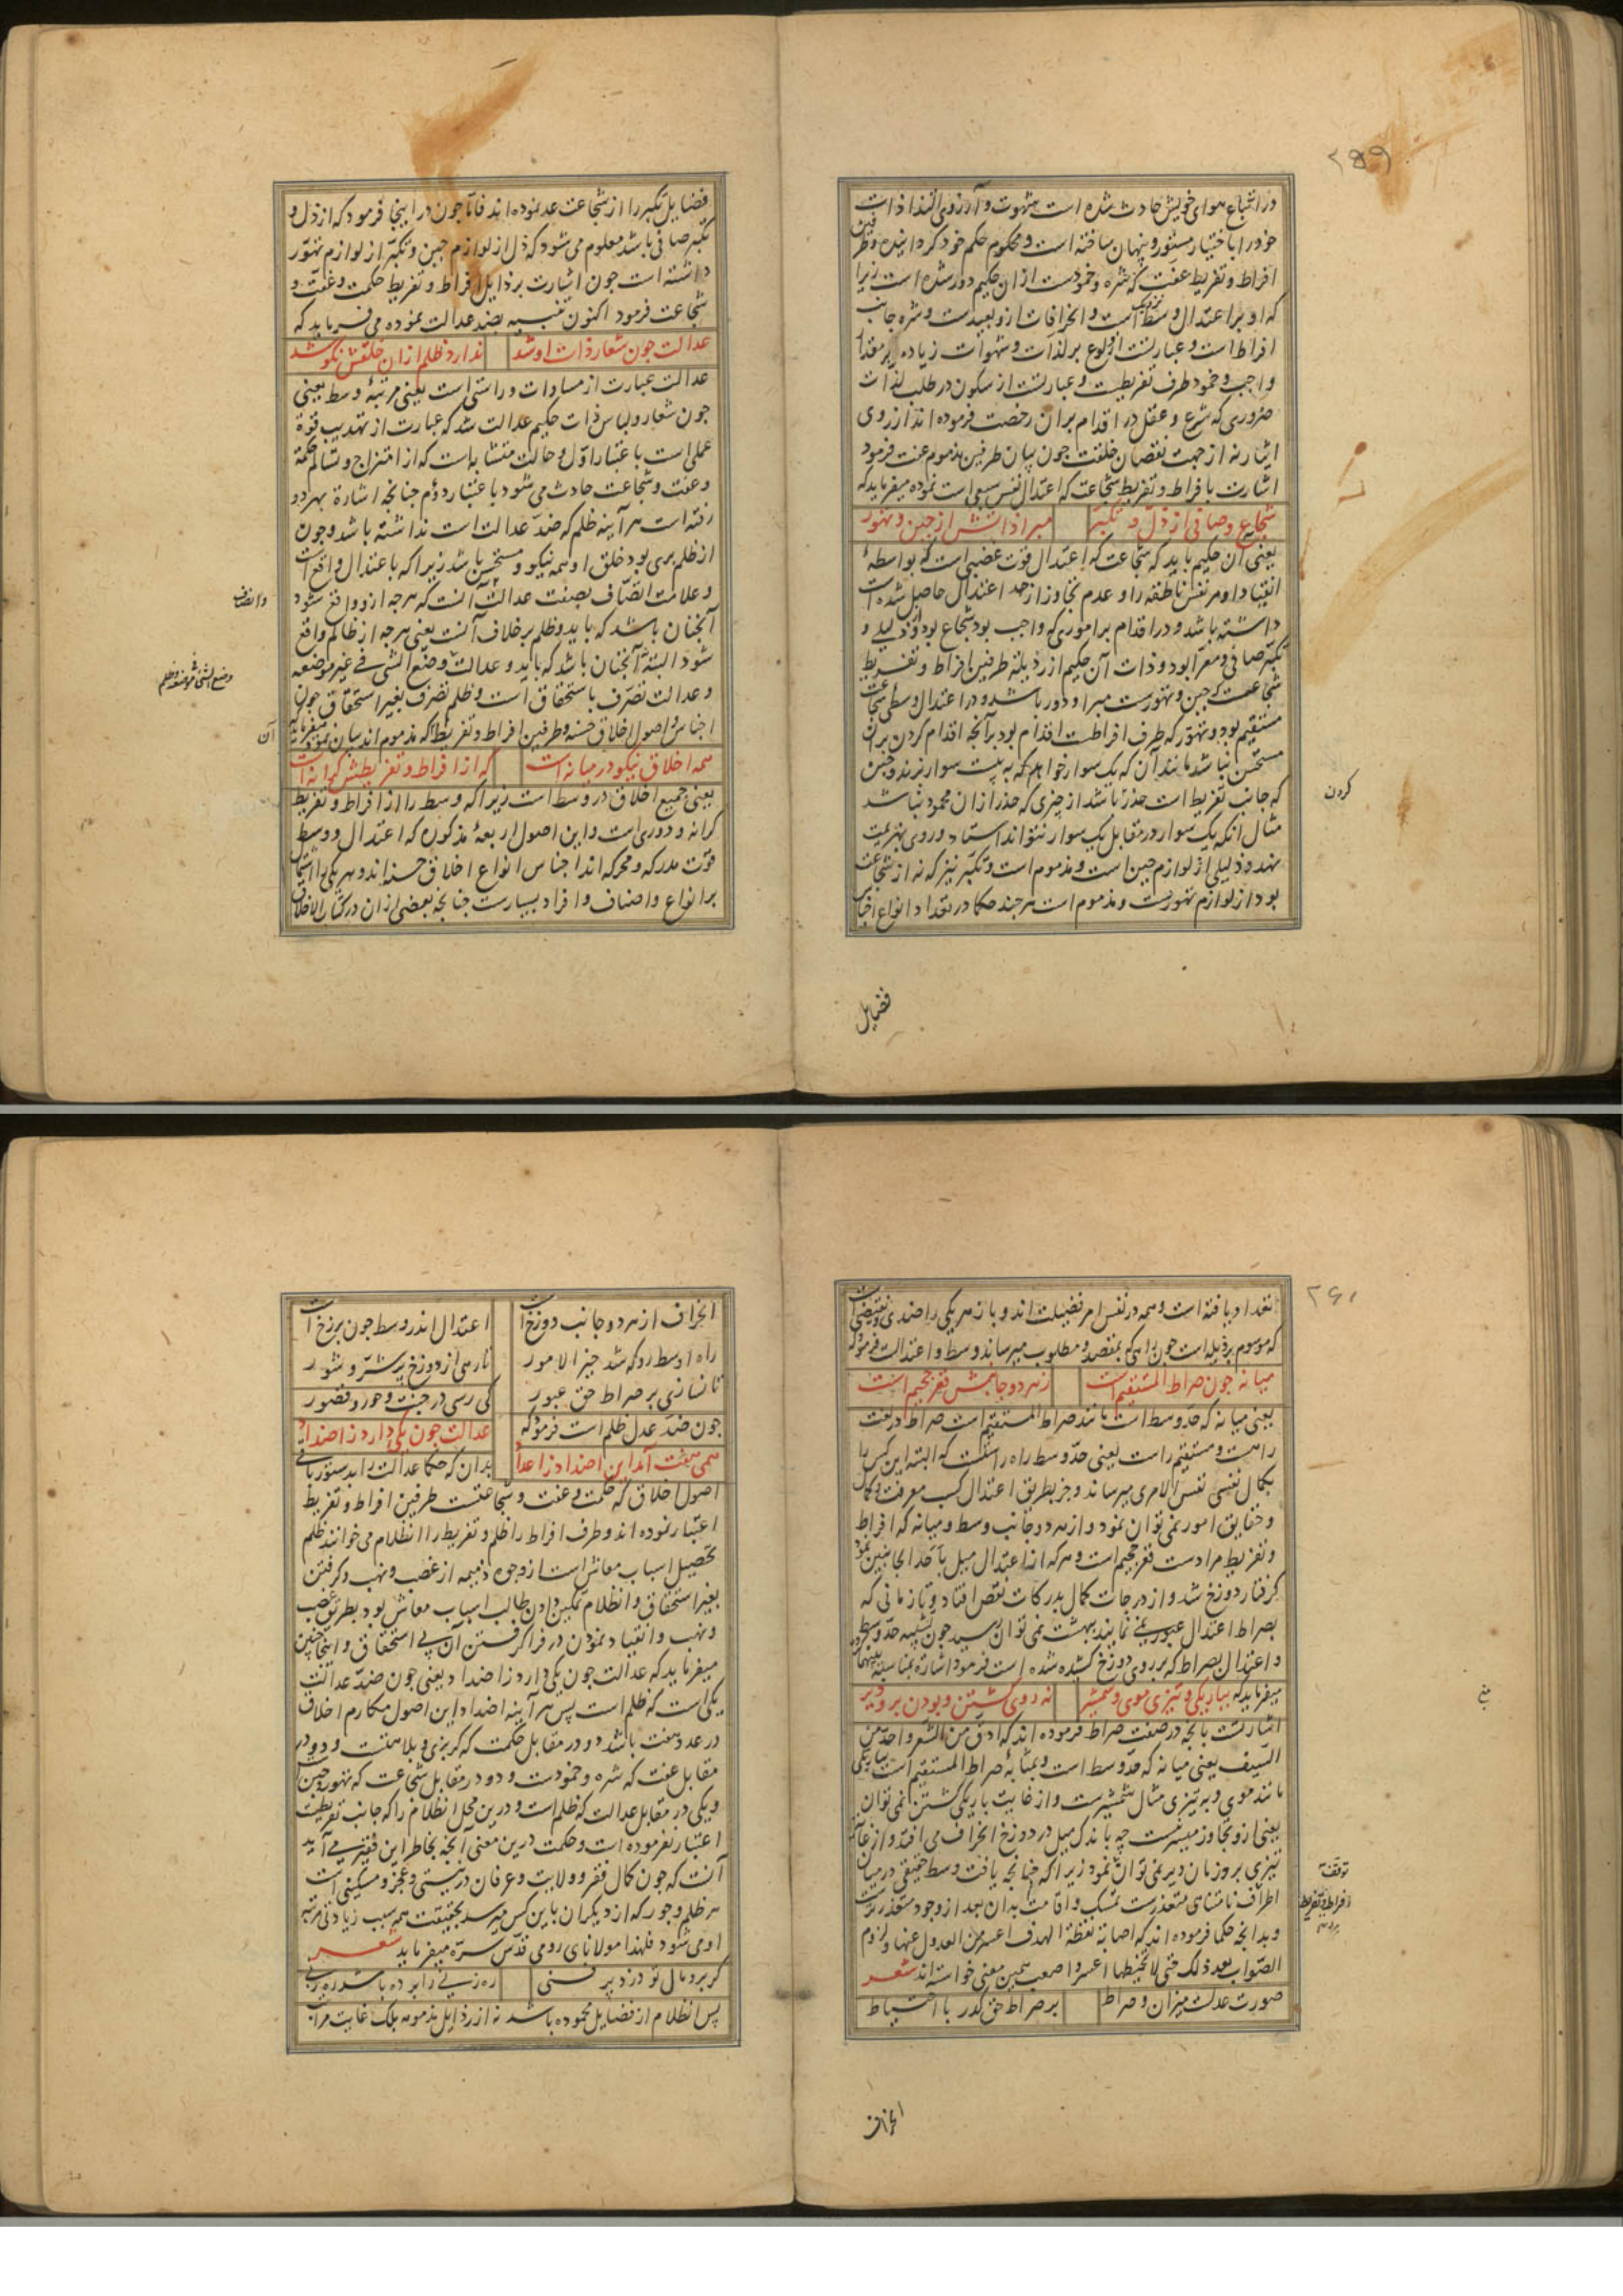 ۲۵۹
در اتباع هوای خویش حادث شده است شهوت و آرزوی التذاذات
خود را باختیار مستور و پنهان ساخته است و محکوم حکم خود گردانیده و طرفین
افراط و تفریط عفت که شره و خمودست ازان حکیم دور شده است زیرا
که او برا عتدال وسط نزدیک است و انحرافات ازو بعیدست و شره جانب
افراط است و عبارتست از ولوع بر لذات و شهوات زیاده بر مقدار
واجب و خمود طرف تفریطست و عبارتست از سکون در طلب لذات
ضروری که شرع و عقل در اقدام بران رخصت فرموده اند از روی
ایثار نه از جهت نقصان خلقت چون بیان طرفین مذموم عفت فرمود
اشارت بافراط و تفریط شجاعت که اعتدال نفس سبعی است نموده میفرماید که
شجاع و صافی از ذل و تکبر مبرا ذاتش از جبن و تهور
یعنی آن حکیم باید که شجاعت که اعتدال قوت غضبی است که بواسطهٔ
انقیاد او مر نفس ناطقه را و عدم تجاوز از حد اعتدال حاصل شده است
داشته باشد و در اقدام بر اموری که واجب بود شجاع بود و از ذلیلی و
تکبر صافی و معرا بود و ذات آن حکیم از رذیلهٔ طرفین افراط و تفریط
شجاعت که جبن و تهورست مبرا و دور باشد و در اعتدال وسطی شجاعت
مستقیم بود و تهور که طرف افراطست اقدام بود بر آنچه اقدام کردن بران
مستحسن نباشد مانند آن که یک سوار خواهد که به بیست سوار بزند و جبن
که جانب تفریط است حذر باشد از چیزی که حذر ازان محمود نباشد
کردن
مثال آنکه یک سوار در مقابل یک سوار نتواند استاد و روی بهزیمت
نهد و ذلیلی از لوازم جبن است و مذموم است و تکبر نیز که نه از شجاعت
بود از لوازم تهورست و مذموم است هر چند حکما در تعداد انواع اجناس
فضایل
فضایل تکبر را از شجاعت عد نموده اند فاما چون در اینجا فرمود که از ذل و
تکبر صافی باشد معلوم می شود که ذل از لوازم جبن و تکبر از لوازم تهور
داشته است چون اشارت برذایل افراط و تفریط حکمت و عفت و
شجاعت فرمود اکنون تنبیه بضد عدالت نموده می فرماید که
عدالت چون شعار ذات او شد ندارد ظلم ازان خلقش نکو شد
عدالت عبارت از مساوات و راستی است یعنی مرتبهٔ وسط یعنی
چون شعار و لباس ذات حکیم عدالت شد که عبارت از تهذیب قوة
عملی است باعتبار اول و حالت متشابه است که از امتزاج و تسالم حکمة
و عفت و شجاعت حادث می شود باعتبار دوم چنانچه اشارة بهر دو
رفته است هر آینه ظلم که ضد عدالت است نداشته باشد و چون
از ظلم بری بود خلق او همه نیکو و مستحسن باشد زیرا که باعتدال واقع است
و علامت اتصاف بصفت عدالت آنست که هر چه ازو واقع شود
و انصاف
آنچنان باشد که باید و ظلم بر خلاف آنست یعنی هر چه از ظالم واقع
شود البته نه آنچنان باشد که باید و عدالت وضع الشی فی غیر موضعه
وضع الشی فی موضعه و ظلم
و عدالت تصرف باستحقاق است و ظلم تصرف بغیر استحقاق چون
اجناس و اصول اخلاق حسنه و طرفین افراط و تفریط که مذموم اند بیان نمود میفرماید که
آن
همه اخلاق نیکو در میانه است که از افراط و تفریطش کرانه است
یعنی جمیع اخلاق در وسط است زیرا که وسط را از افراط و تفریط
کرانه و دوری است و این اصول اربعهٔ مذکوره که اعتدال و وسط
قوت مدرکه و محرکه اند اجناس انواع اخلاق حسنه اند و هر یکی را اشتمال
بر انواع و اصناف و افراد بسیارست چنانچه بعضی ازان در کتاب الاخلاق
۲۶۰
تعداد یافته است و همه در نفس امر فضیلت اند و باز هر یکی را ضدی و نقیضی است
که موسوم برذیله است چون راهی که بمقصد و مطلوب میرساند وسط و اعتدالست فرمود که
میانه چون صراط المستقیم است ز هر دو جانبش قعر جحیم است
یعنی میانه که حد وسط است مانند صراط المستقیم است صراط در لغت
راهست و مستقیم راست یعنی حد وسط راه راست که البته این کس را
بکمال نفسی نفس الامری میرساند و جز بطریق اعتدال کسب معرفت و کمال
و حقایق امور نمی توان نمود و از هر دو جانب وسط و میانه که افراط
و تفریط مرادست قعر جحیم است و هر که از اعتدال میل باحد الجانبین نمود
گرفتار دوزخ شد و از درجات کمال بدرکات نقص افتاد و تا زمانی که
بصراط اعتدال عبور نمی نماید بهشت نمی توان رسید چون تشبیه حد وسط
و اعتدال بصراط که بر روی دوزخ کشیده شده است فرمود اشارة بمناسبة بینهما نموده
میفرماید که بباریکی و تیزی موی و شمشیر نه روی گشتن و بودن برو دیر
اشارتست بآنچه در صفت صراط فرموده اند که ادق من الشعر و احد من
السیف یعنی میانه که حد وسط است و بمثابهٔ صراط المستقیم است بباریکی
مانند موی و به تیزی مثال شمشیرست و از غایت باریکی گشتن نمی توان
یعنی ازو تجاوز میسر نیست چه باندک میل در دوزخ انحراف می افتد و از غایت
تیزی برو زمان دیر نمی توان نمود زیرا که چنانچه یافت وسط حقیقی در میان
توقف
اطراف نامتناهی متعذرست تمسک و اقامت بدان بعد از وجود متعذرترست
افراط و تفریط
و بدانچه حکما فرموده اند که اصابة نقطة الهدف اعسر من العدول عنها و لزوم
الصواب بعد ذلک حتی لا یخطیها اعسر و اصعب همین معنی خواسته اند شعر
صورت عدلست میزان و صراط بر صراط حق گذر با احتیاط
انحراف
انحراف از هر دو جانب دوزخ است اعتدال اندر وسط چون برزخ است
راه اوسط رو که شد خیر الامور تا رهی از دوزخ پر شر و شور
تا نسازی بر صراط حق عبور کی رسی در جنت و حور و قصور
چون ضد عدل ظلم است فرمود که عدالت چون یکی دارد ز اضداد
همی هفت آمد این اضداد ز اعداد بدان که حکما عدالت را بدستور باقی
اصول اخلاق که حکمت و عفت و شجاعتست طرفین افراط و تفریط
اعتبار نموده اند و طرف افراط را ظلم و تفریط را انظلام می خوانند ظلم
تحصیل اسباب معاش است از وجوه ذمیمه از غصب و نهب و گرفتن
بغیر استحقاق و انظلام تمکین دادن طالب اسباب معاش بود بطریق غصب
و نهب و انقیاد نمودن در فرا گرفتن آن بی استحقاق و اینجا چنین
میفرماید که عدالت چون یکی دارد ز اضداد یعنی چون ضد عدالت
یکی است که ظلم است پس هر آینه اضداد این اصول مکارم اخلاق
در عدد هفت باشد دو در مقابل حکمت که گربزی و بلاهتست و دو در
مقابل عفت که شره و خمودست و دو در مقابل شجاعت که تهور و جبن است
و یکی در مقابل عدالت که ظلم است و درین محل انظلام را که جانب تفریطست
اعتبار نفرموده است و حکمت درین معنی آنچه بخاطر این فقیر می آید
آنست که چون کمال فقر و ولایت و عرفان در نیستی و عجز و مسکینی است
هر ظلم و جور که از دیگران باین کس میرسد بحقیقت همه سبب زیادتی مرتبهٔ
او می شود فلهذا مولانای رومی قدس سره میفرماید شعر
گر برد مال تو دزد پر فنی ره زنی را برده باشد ره زنی
پس انظلام از فضایل محموده باشد نه از رذایل مذمومه بلک غایت مراتب